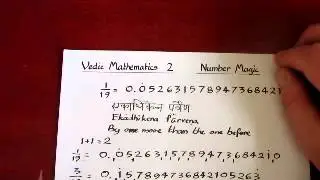 Vedic Mathematics 2 Number Magic
1/19 = 0.052631578947368421
एकाधिकेन पूर्वेण
Ekadhikena Purvena
By one more than the one before
1+1=2
1/19 = 0.0526315789473684210
3/19 = 0.157894736842105263